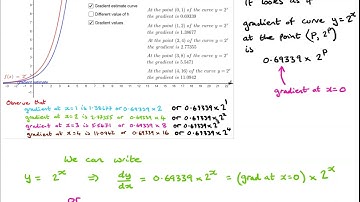 Gradient estimate curve
Different value of h
Gradient values
At the point (0, 1) of the curve y = 2ˣ
the gradient is
0.69339
At the point (1, 2) of the curve y = 2ˣ
the gradient is
1.38677
At the point (2, 4) of the curve y = 2ˣ
the gradient is
2.77355
At the point (3, 8) of the curve y = 2ˣ
the gradient is
5.5471
At the point (4, 16) of the curve y = 2ˣ
the gradient is
11.0942
gradient estimate
It looks as if
gradient of curve y=2ˣ
at the point (P, 2ᴾ)
is
0.69339 × 2ᴾ
gradient at x=0
Observe that
gradient at x=1 is 1.38677 or 0.69339 × 2 or 0.69339 × 2¹
gradient at x=2 is 2.77355 or 0.69339 × 4 or 0.69339 × 2²
gradient at x=3 is 5.5471 or 0.69339 × 8 or 0.69339 × 2³
gradient at x=4 is 11.0942 or 0.69339 × 16 or 0.69339 × 2⁴
We can write
y = 2ˣ ⇒ dy/dx = 0.69339 × 2ˣ = (grad at x=0) × 2ˣ
or